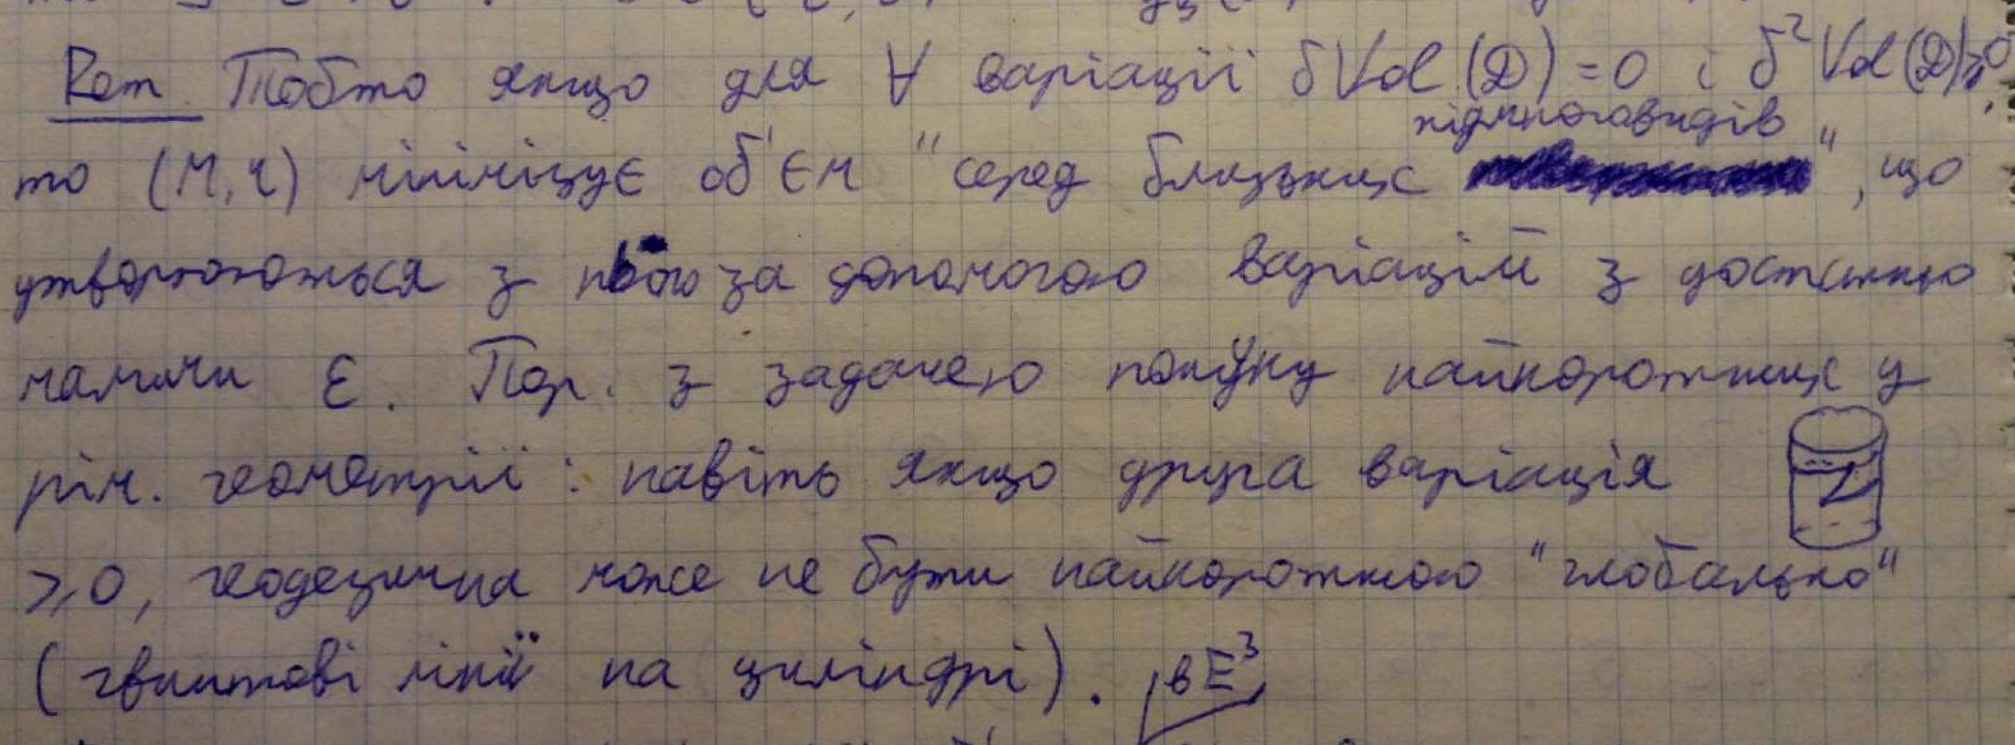 Rem. Тобто якщо для ∀ варіації δVol(D) = 0 і δ²Vol(D) ≥ 0,
підмноговидів
то (M, r) мінімізує об'єм "серед близьких ", що
утворюються з нього за допомогою варіацій з достатньо
малими ε. Пор. з задачею пошуку найкоротших у
рім. геометрії: навіть якщо друга варіація
≥ 0, геодезична може не бути найкоротшою "глобально"
(гвинтові лінії на циліндрі). в E³